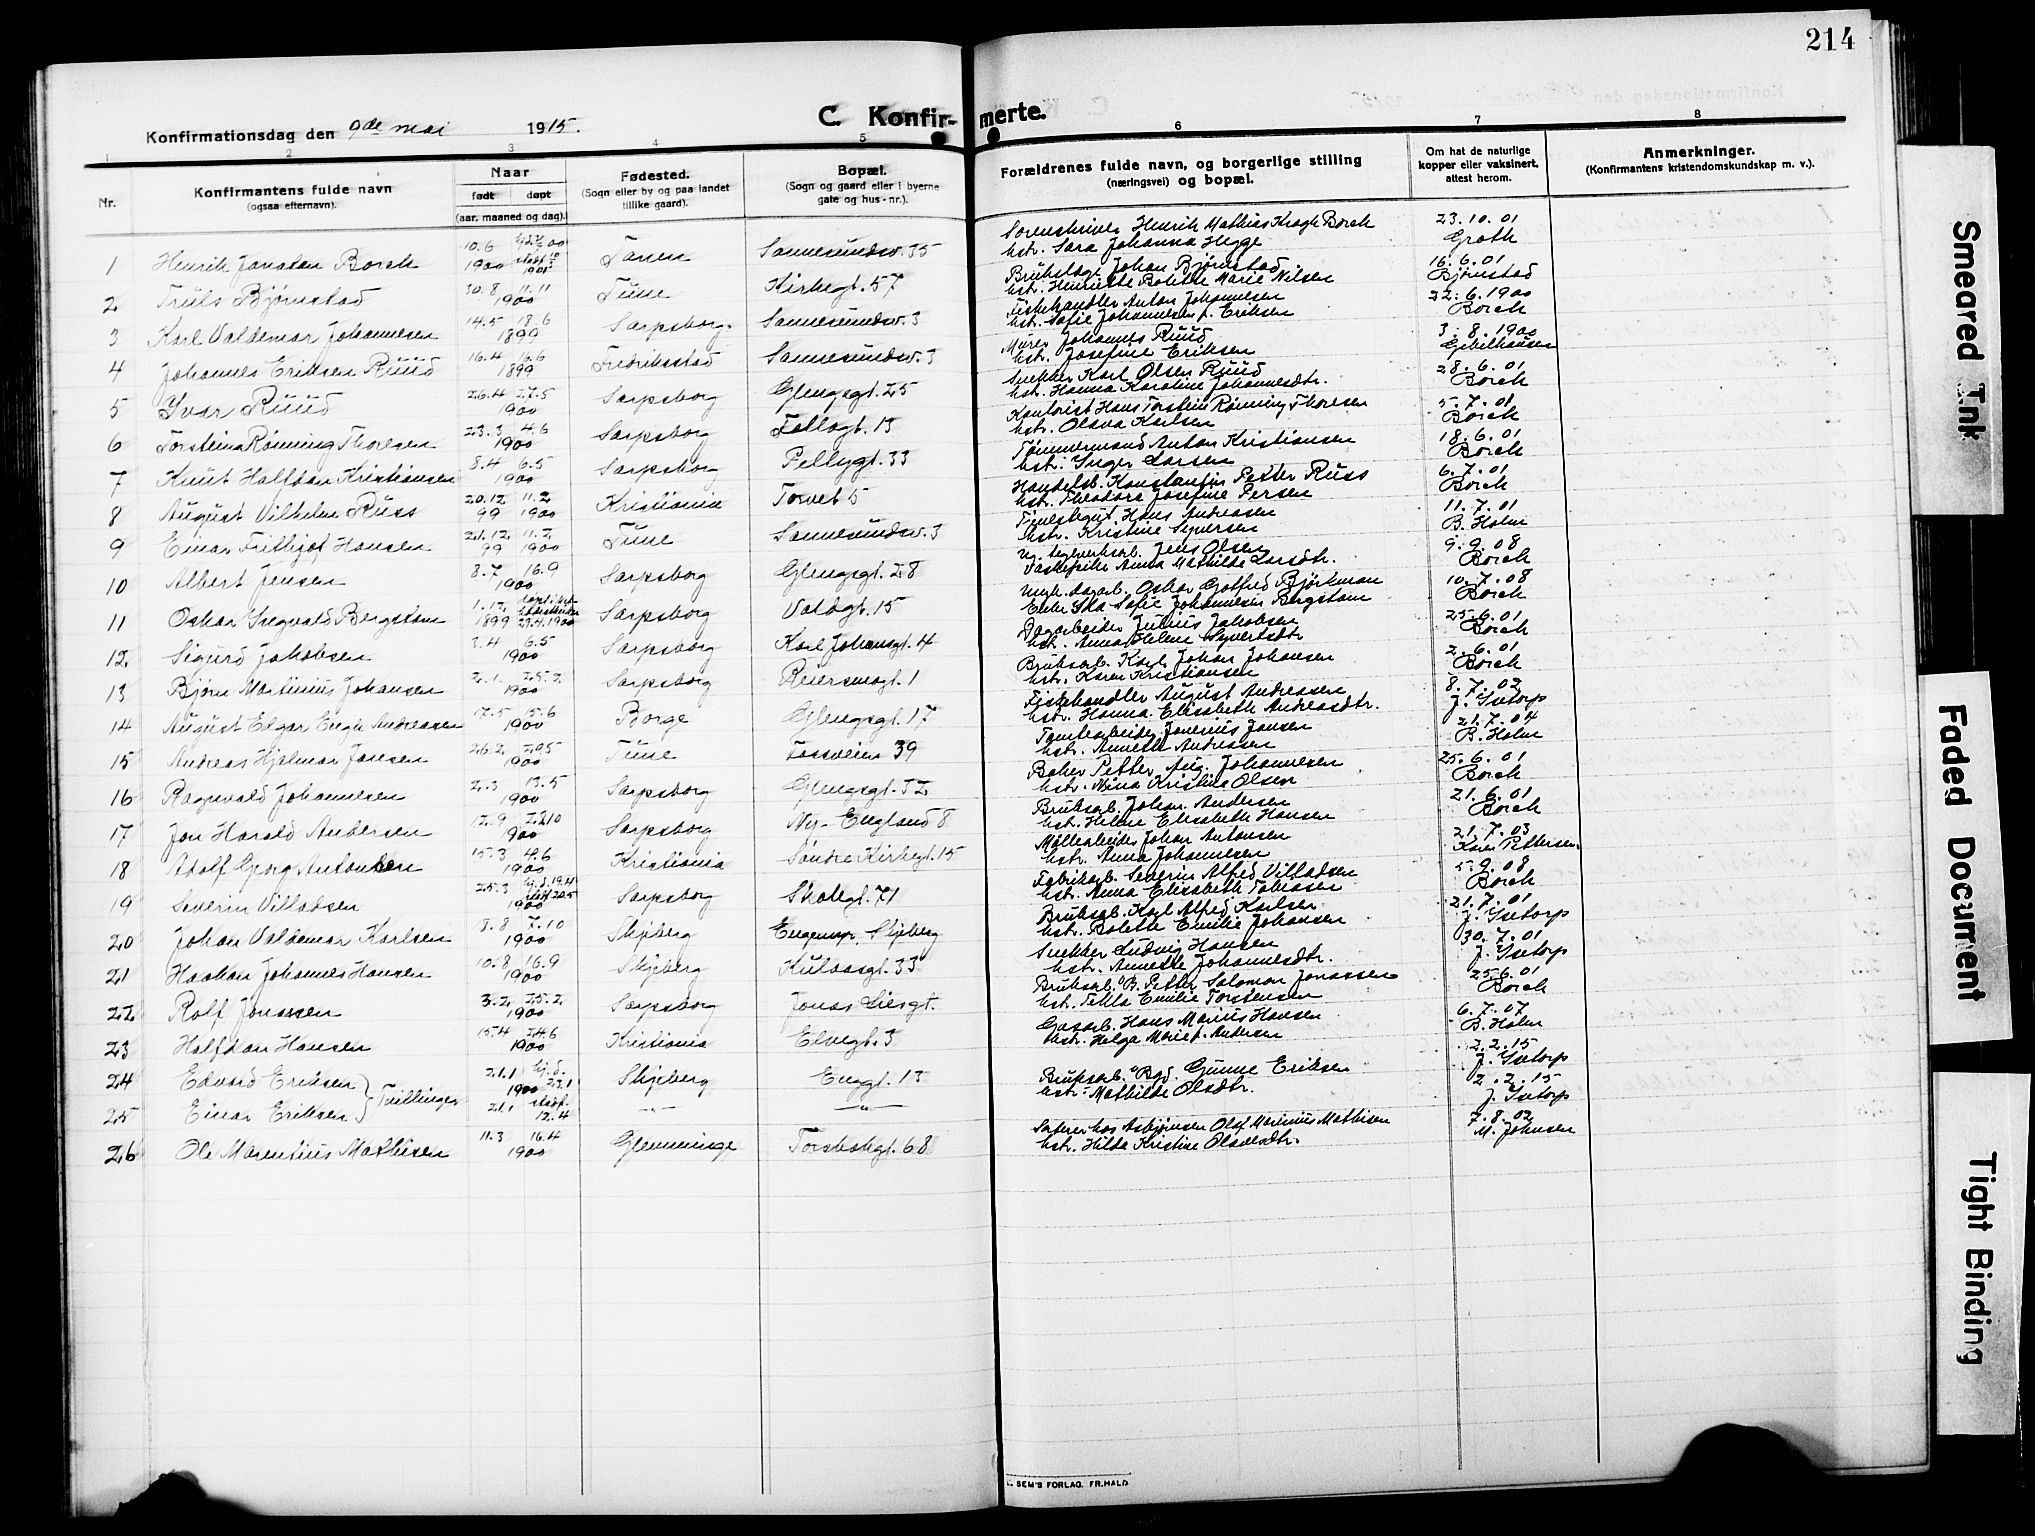 214
Konfirmationsdag den 9de mai 1915.
C. Konfir-merte.
1 2 3 4 5 6 7 8
Nr.
Konfirmantens fulde navn
(ogsaa efternavn).
Naar
født døpt
(aar, maaned og dag).
Fødested.
(Sogn eller by og paa landet
tillike gaard).
Bopæl.
(Sogn og gaard eller i byerne
gate og hus-nr.).
Forældrenes fulde navn, og borgerlige stilling
(næringsvei) og bopæl.
Om hat de naturlige
kopper eller vaksinert,
attest herom.
Anmerkninger.
(Konfirmantens kristendomskundskap m. v.).
1 Henrik Jonatan Borch 10.6 1900 Tanen Sannesundsv. 35 Sorenskriver Henrik Mathias Kragh Borch 23.10.01
hstr. Sara Johanna Hegge Groth
2 Truls Bjørnstad 30.8 11.11 1900 Tune Kirkegt. 57 Johan Bjørnstad 16.6.01
hstr. Henriette Bolette Marie Nilsen Bjørnstad
3 Karl Valdemar Johannesen 14.5 18.6 1899 Sarpsborg. Sannesundsv. 3 Fiskehandler Anton Johannesen 22.6.1900
hstr. Sofie Johannesen f. Eriksen Borch
4 Johannes Eriksen Ruud 16.4 16.6 1899 Fredriksstad Sannesundsv. 3 Murer Johannes Ruud 3.8.1900
hstr. Josefine Eriksen
5 Yvar Ruud 26.4 27.5 1900 Sarpsborg Glengsgt. 25 Snekker Karl Olsen Ruud 28.6.01
hstr. Hanna Karoline Johannesdtr. Borch
6 Torstein Rønning Thoresen 23.3 4.6 1900 Sarpsborg Kontorist Hans Torstein Rønning Thoresen 5.7.01
hstr. Olava Karlsen Borch
7 Knut Halfdan Kristiansen 8.4 6.5 1900 Sarpsborg Pellygt. 33 Tømmermand Anton Kristiansen 18.6.01
hstr. Inger Larsen Borch
8 August Vilhelm Russ 20.12 99 11.2 1900 Kristiania Torvet 5 Handelsb. Konstantin Petter Russ 6.7.01
hstr. Theodora Josefine Persen Borch
9 Einar Frithjof Hansen 21.12. 99 11.2. 1900 Tune Sannesundsv. 3 Hans Andreasen 11.7.01
hstr. Kristine Syversen B. Holm
10 Albert Jensen 8.7 16.9 1900 Sarpsborg Glengsgt. 28 Jens Olsen 9.9.08
Anna Mathilde Larsdtr. Borch
11 Oskar Ingvald Bergstam 1.12. 1899 29.4.1900 Sarpsborg Valdgt. 15 Oskar Gotfred Bjørkman 10.7.08
Enke Ida Sofie Johannesen Bergstam Borch
12. Sigurd Jakobsen 3.4 6.5 1900 Sarpsborg Karl Johansgt. 4 Dagarbeider Julius Jakobsen 25.6.01
hstr. Anna Helene Syvertsdtr Borch
13 Bjørn Martinius Johansen 2.1. 25.2. 1900 Sarpsborg Reiersengt. 1 Bruksarb. Karl Johan Johansen 2.6.01
hstr. Karen Kristiansen Borch
14 August Edgar Engh Andreasen 17.5 15.6 1900 Borge Glengsgt. 17 Fiskehandler August Andreasen 8.7.02
hstr. Hanna Elisabeth Andreasdtr. J. Isetorp
15 Andreas Hjalmar Jansen 26.2. 20.5 1900 Tune Fossveien 39 Tomtearbeider Janerius Jansen 21.7.04
hstr. Annette Andreasen B. Holm
16 Ragnvald Johannesen 2.3 13.5 1900 Sarpsborg Glengsgt. 52 Baker Petter Aug. Johannesen 25.6.01
hstr. Mina Kristine Olsen Borch
17 Jon Harald Andersen 12.9 28.10 1900 Sarpsborg Ny-England 8 Bruksarb. Johan Andersen 21.6.01
hstr. Helene Elisabeth Hansen Borch
18 Adolf Georg Antonsen 15.3 4.6 1900 Kristiania Søndre Kirkegt. 15 Møllearbeider Johan Antonsen 21.7.03
hstr. Anna Johannesen Karen Pettersen
19 Severin Villadsen 25.3 1900 Sarpsborg Skolegt. 71 Fabrikarb. Severin Alfred Villadsen 5.9.08
hstr. Anna Elisabeth Tobiasen Borch
20 Johan Valdemar Karlsen 8.8 7.10 1900 Skjeberg Skjeberg Bruksarb. Karl Alfred Karlsen 21.7.01
hstr. Bolette Emilie Johansen J. Isetorp
21 Haakon Johannes Hansen 10.8 16.9 1900 Skjeberg Kulaasgt. 33 Snekker Ludvig Hansen 30.7.01
hstr. Annette Johannesdtr. J. Isetorp
22 Rolf Jonassen 3.2. 25.2. 1900 Sarpsborg Jonas Liesgt. Bruksarb. Petter Salomon Jonassen 25.6.01
hstr. Tekla Emilie Torstensen Borch
23 Halfdan Hansen 15.4 24.6 1900 Kristiania Elvegt. 3 Gasarb. Hans Marius Hansen 6.7.07
hstr. Helga Marie f. Andersen B. Holm
24 Edvard Eriksen } Tvillinger 21.1 1900 Skjeberg Enggt. 13 Gunne Eriksen 2.2.15
hstr. Mathilde Olsdtr. J. Isetorp
25 Einar Eriksen 21.1 12.4 -"- -"- 2.2.15
J. Isetorp
26 Ole Marentius Mathisen 11.3 16.4 1900 Glemminge Torsbakgt. 68 Olaf Marinius Mathisen 7.8.02
hstr. Hilda Kristine Olavesdtr. M. Johnsen
SEM'S FORLAG. FR.HALD
Smeared Ink
Faded Document
Tight Binding